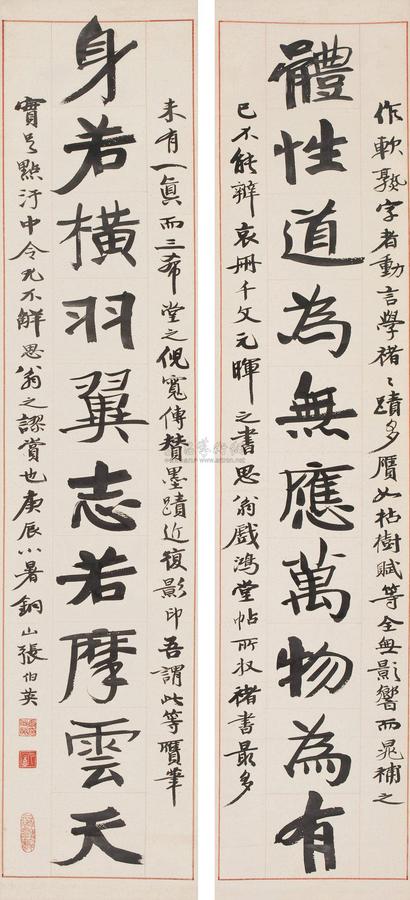 體性道為無應萬物為有
作軟熟字者動言學褚褚蹟多贋如枯樹賦等全無影響而晁補之
已不能辯哀冊千文元暉之書思翁戲鴻堂帖所收褚書最多
身若橫羽翼志若摩雲天
未有一真而三希堂之倪寬傳贊墨蹟近復影印吾謂此等贋筆
實足點汙中令允不解思翁之謬賞也庚辰小暑銅山張伯英